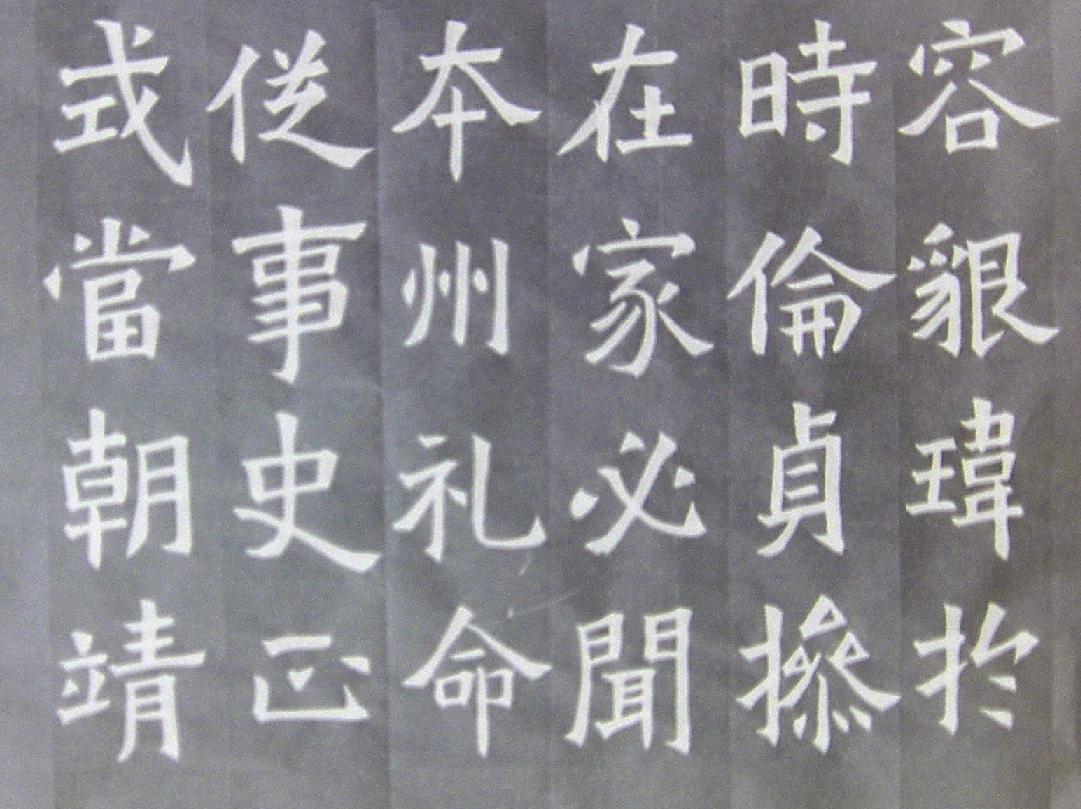 容貌瑋於
時倫貞摻
在家必聞
本州礼命
従事史
式當朝靖